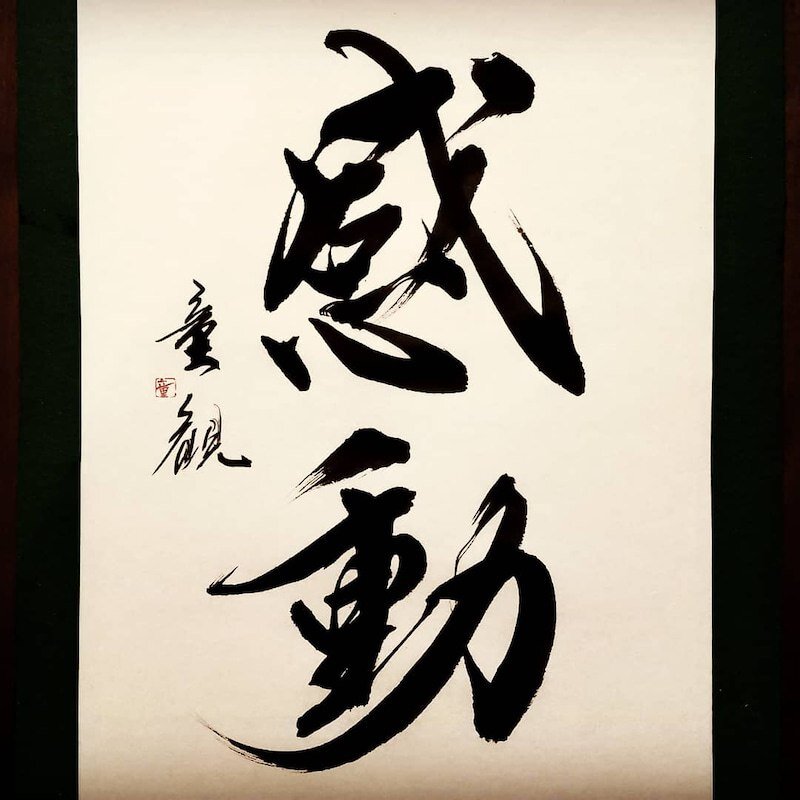 感動
童観
童